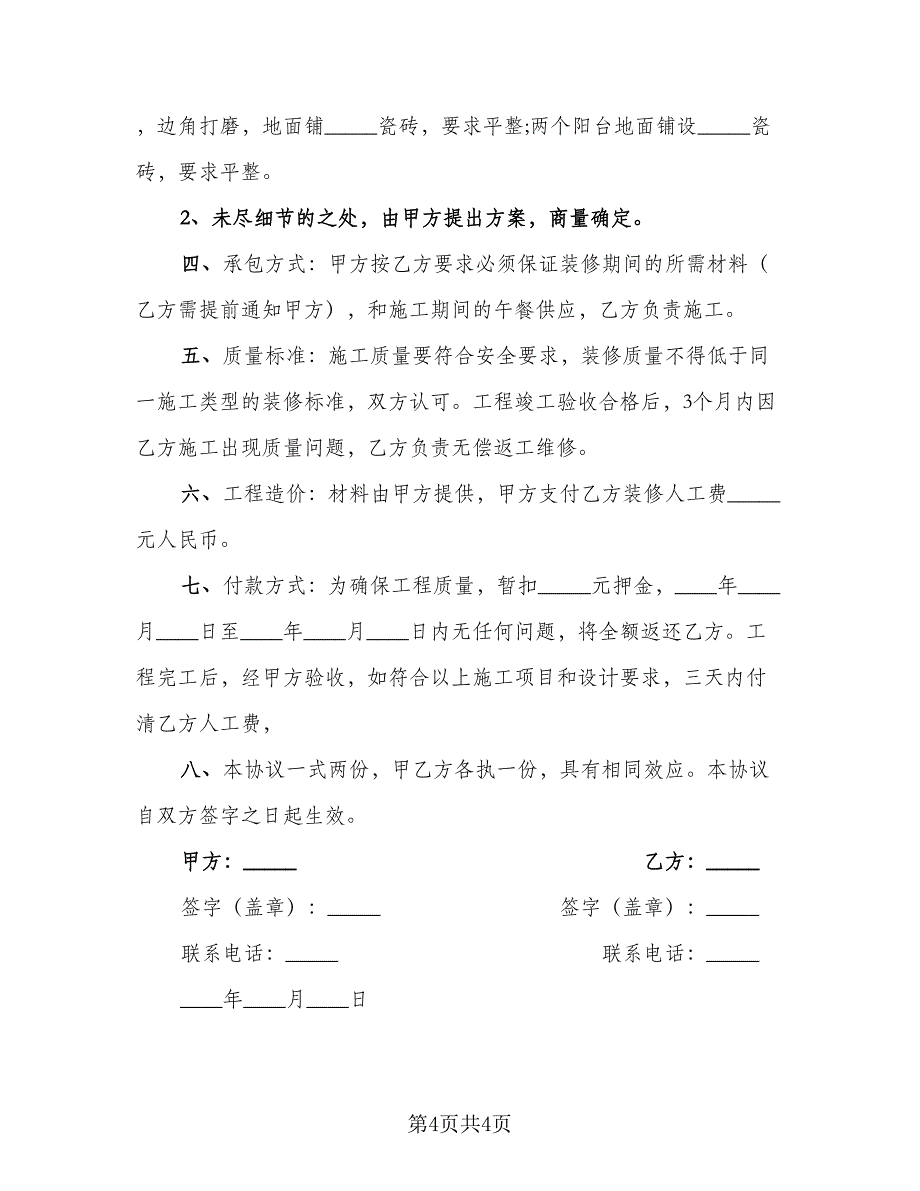 ，边角打磨，地面铺_____瓷砖，要求平整;两个阳台地面铺设_____瓷
砖，要求平整。
2、未尽细节的之处，由甲方提出方案，商量确定。
四、承包方式：甲方按乙方要求必须保证装修期间的所需材料（
乙方需提前通知甲方），和施工期间的午餐供应，乙方负责施工。
五、质量标准：施工质量要符合安全要求，装修质量不得低于同
一施工类型的装修标准，双方认可。工程竣工验收合格后，3个月内因
乙方施工出现质量问题，乙方负责无偿返工维修。
六、工程造价：材料由甲方提供，甲方支付乙方装修人工费_____
元人民币。
七、付款方式：为确保工程质量，暂扣_____元押金，____年____
月____日至____年____月____日内无任何问题，将全额返还乙方。工
程完工后，经甲方验收，如符合以上施工项目和设计要求，三天内付
清乙方人工费，
八、本协议一式两份，甲乙方各执一份，具有相同效应。本协议
自双方签字之日起生效。
甲方：_____ 乙方：_____
签字（盖章）：_____ 签字（盖章）：_____
联系电话：_____ 联系电话：_____
____年____月____日
第4页共4页